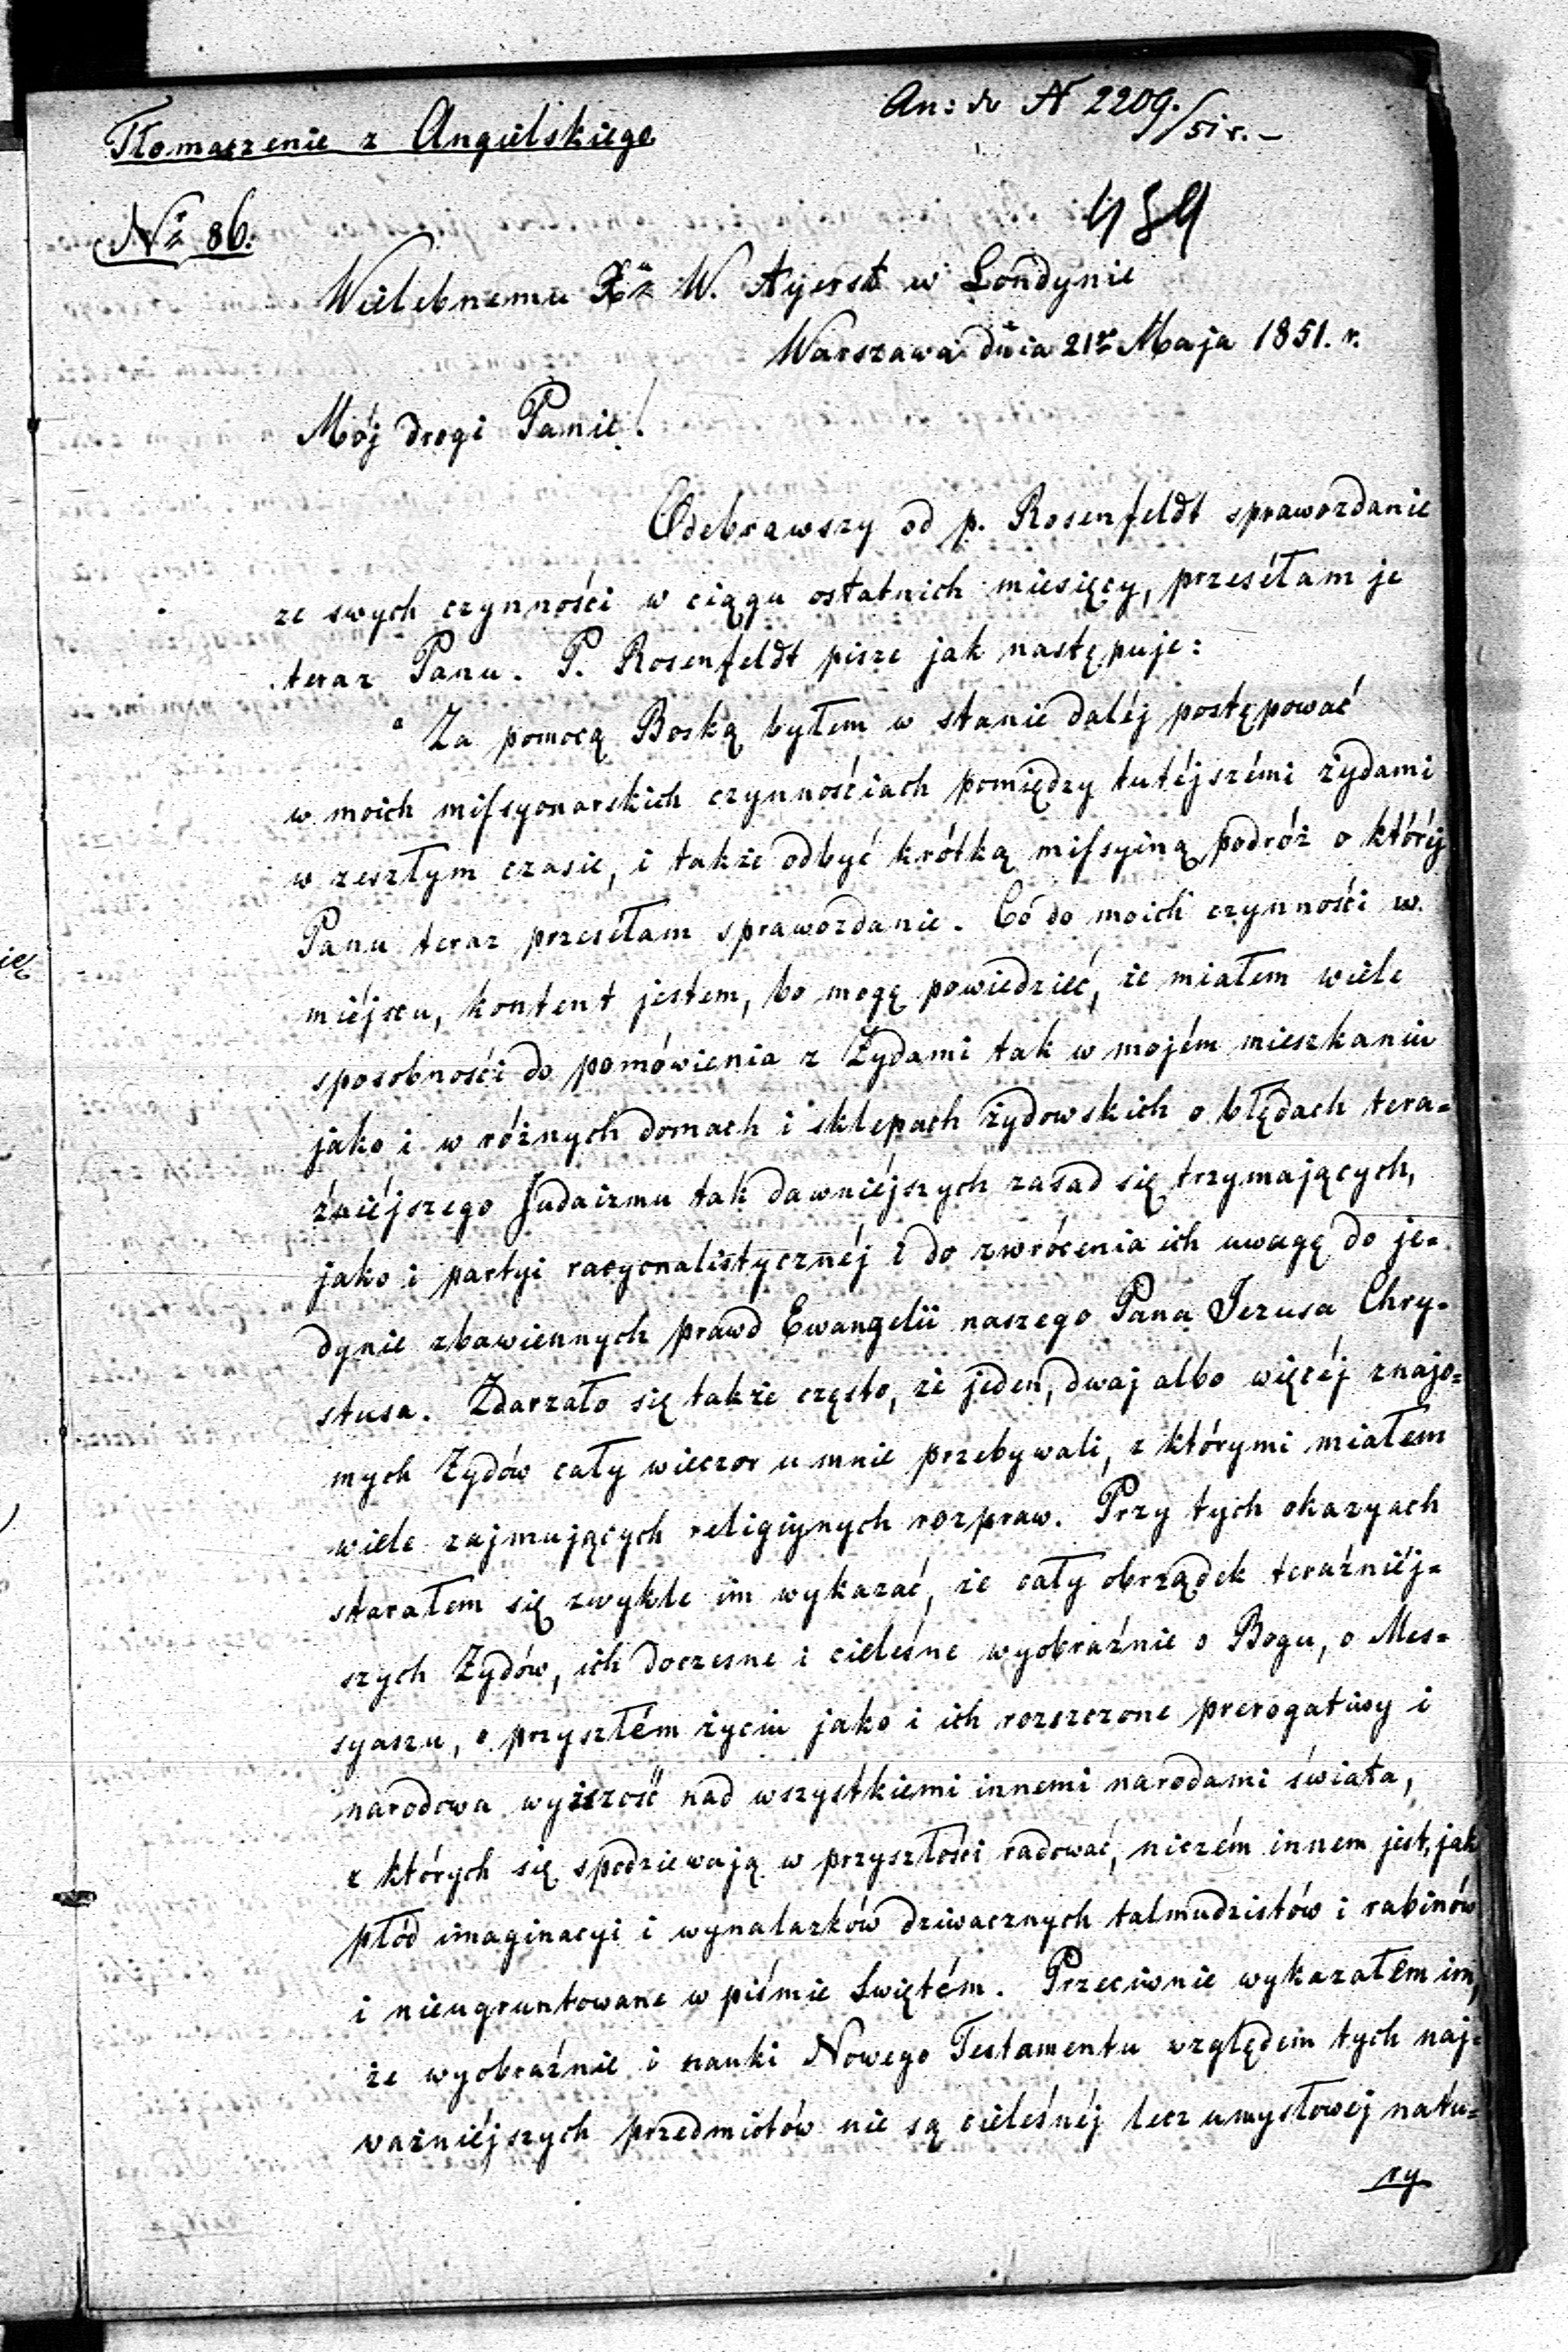 An: do N 2209./51 r. –
Tłomaczenie z Angielskiego
484
No 86.
Wielebnemu Xdz W. Ayerst w Londynie
Warszawa dnia 21go Maja 1851. r.
Mój drogi Panie!
Odebrawszy od p. Rosenfeldt sprawozdanie
ze swych czynności w ciągu ostatnich miesięcy, przesełam je
teraz Panu. P. Rosenfeldt pisze jak następuje:
"Za pomocą Boską byłem w stanie daléj postępować
w moich missyonarskich czynnościach pomiędzy tutéjszémi żydami
w zeszłym czasie, i także odbyć krótką missyiną podróż o któréj
Panu teraz przesełam sprawozdanie. Có do moich czynności w
miéjscu, kontent jestem, bo mogę powiedzieć, że miałem wiele
sposobności do pomówienia z Żydami tak w mojém mieszkaniu
jako i w różnych domach i sklepach żydowskich o błędach tera=
źniéjszego Judaizmu tak dawniéjszych zasad się trzymających,
jako i partyi racyonalistycznéj i do zwrócenia ich uwagę do je=
dynie zbawiennych prawd Ewangelii naszego Pana Jezusa Chry=
stusa. Zdarzało się także często, że jeden, dwaj albo więcéj znajo=
mych Żydów cały wieczor u mnie przebywali, z którymi miałem
wiele zajmujących religiynych rozpraw. Przy tych okazyach
starałem się zwykle im wykazać, że cały obrządek teraźniéj=
szych Żydów, ich doczesne i cieleśne wyobraźnie o Bogu, o Mes=
syaszu, o przyszłém życiu jako i ich rozszczone prerogatiwy i
narodowa wyższość nad wszystkiemi innemi narodami świata,
z których się spodziewają w przyszłości radować, niczém innem jest, jak
płód imaginacyi i wynalazków dziwacznych talmudzistów i rabinów
i nieugruntowane w piśmie Świętém. Przeciwnie wykazałem im,
że wyobraźnie i nauki Nowego Testamentu względem tych naj=
ważniéjszych przedmiotów nie są cieleśnéj lecz umysłowej natu=
ry
ię